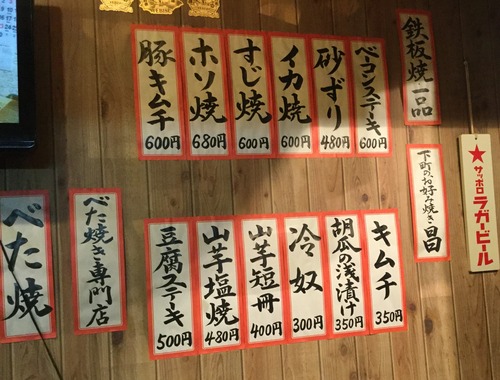 鉄板焼一品
ベーコンステーキ
600円
砂ずり
480円
イカ焼
600円
すじ焼
600円
ホソ焼
680円
豚キムチ
600円
下町のお好み焼き 昌
キムチ
350円
胡瓜の浅漬け
350円
冷奴
300円
山芋短冊
400円
山芋塩焼
480円
豆腐ステーキ
500円
べた焼き専門店
べた焼
★サッポロ
ラガービール